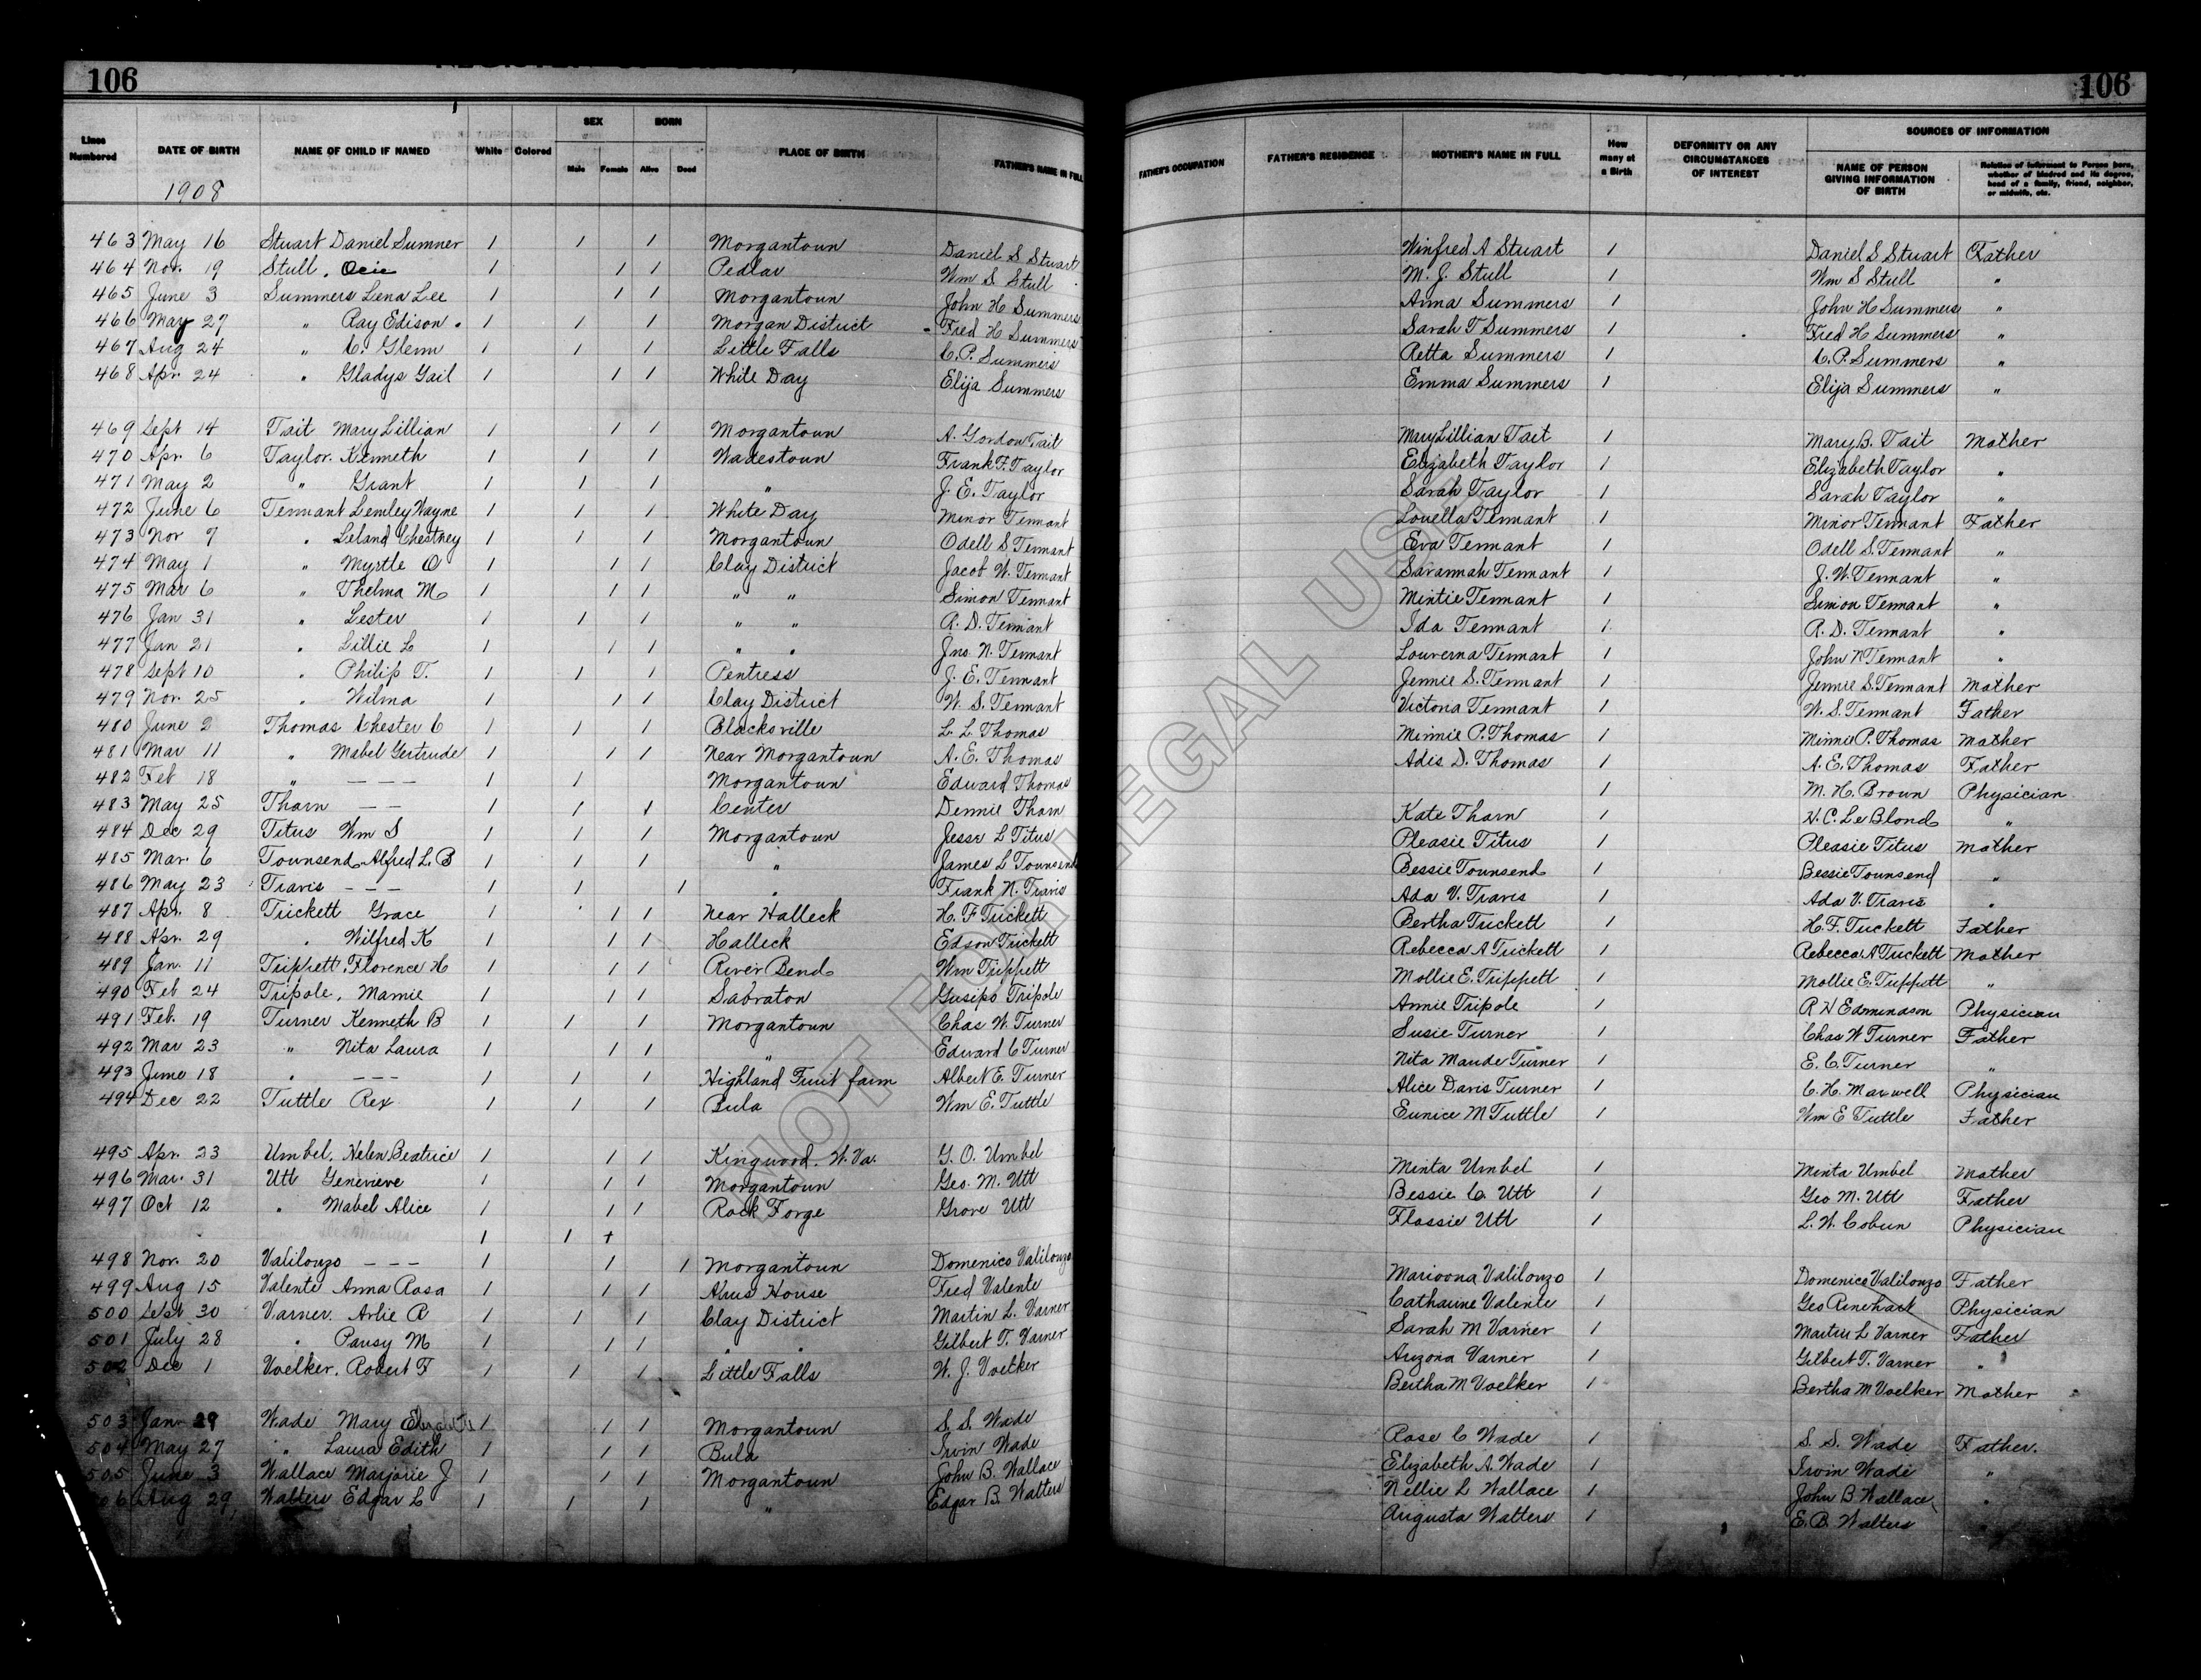 106
106
Lines Numbered
DATE OF BIRTH
NAME OF CHILD IF NAMED
White
Colored
SEX
Male
Female
BORN
Alive
Dead
PLACE OF BIRTH
FATHER'S NAME IN FULL
FATHER'S OCCUPATION
FATHER'S RESIDENCE
MOTHER'S NAME IN FULL
How many at a Birth
DEFORMITY OR ANY CIRCUMSTANCES OF INTEREST
SOURCES OF INFORMATION
NAME OF PERSON GIVING INFORMATION OF BIRTH
Relation of informant to Person born, whether of kindred and its degree, head of a family, friend, neighbor, or midwife, etc.
1908
463 May 16 Stuart Daniel Sumner 1 1 1 Morgantown Daniel S Stuart Winfred A Stuart 1 Daniel S Stuart Father
464 Nov. 19 Stull, Ocie 1 1 1 Pedlar Wm S Stull M. J. Stull 1 Wm S Stull "
465 June 3 Summers Lena Lee 1 1 1 Morgantown John H Summers Anna Summers 1 John H Summers "
466 May 27 " Ray Edison 1 1 1 Morgan District Fred H Summers Sarah T Summers 1 Fred H Summers "
467 Aug 24 " C. Glenn 1 1 1 Little Falls C. P. Summers Retta Summers 1 C. P. Summers "
468 Apr. 24 " Gladys Gail 1 1 1 White Day Elija Summers Emma Summers 1 Elija Summers "
469 Sept 14 Tait Mary Lillian 1 1 1 Morgantown A. Gordon Tait Mary Lillian Tait 1 Mary B. Tait Mother
470 Apr. 6 Taylor. Kenneth 1 1 1 Wadestown Frank F. Taylor Elizabeth Taylor 1 Elizabeth Taylor "
471 May 2 " Grant 1 1 1 " J. E. Taylor Sarah Taylor 1 Sarah Taylor "
472 June 6 Tennant Lemley Wayne 1 1 1 White Day Minor Tennant Louella Tennant 1 Minor Tennant Father
473 Nov 7 " Leland Chestney 1 1 1 Morgantown Odell S Tennant Eva Tennant 1 Odell S. Tennant "
474 May 1 " Myrtle O 1 1 1 Clay District Jacob W. Tennant Savannah Tennant 1 J. W. Tennant "
475 Mar 6 " Thelma M 1 1 1 " " Simon Tennant Mintie Tennant 1 Simon Tennant "
476 Jan 31 " Lester 1 1 1 " " R. D. Tennant Ida Tennant 1 R. D. Tennant "
477 Jan 21 " Lillie L 1 1 1 " " Jno. N. Tennant Louverna Tennant 1 John N Tennant "
478 Sept 10 " Philip T. 1 1 1 Pentress J. E. Tennant Jennie S. Tennant 1 Jennie S. Tennant Mother
479 Nov. 25 " Wilma 1 1 1 Clay District W. S. Tennant Victoria Tennant 1 W. S. Tennant Father
480 June 2 Thomas Chester C 1 1 1 Blacksville L. L Thomas Minnie P. Thomas 1 Minnie P. Thomas Mother
481 Mar 11 " Mabel Gertrude 1 1 1 Near Morgantown A. E. Thomas Adis D. Thomas 1 A. E. Thomas Father
482 Feb 18 " — — — 1 1 Morgantown Edward Thomas 1 M. H. Brown Physician
483 May 25 Tharn — — 1 1 1 Center Dennie Tharn Kate Tharn 1 H. C. Le Blond "
484 Dec 29 Titus Wm S 1 1 1 Morgantown Jesse L Titus Pleasie Titus 1 Pleasie Titus Mother
485 Mar. 6 Townsend Alfred L. B 1 1 1 " James L Townsend Bessie Townsend 1 Bessie Townsend "
486 May 23 Travis — — — 1 1 1 " Frank N. Travis Ada V. Travis 1 Ada V. Travis "
487 Apr. 8 Trickett Grace 1 1 1 Near Halleck H. F Trickett Bertha Trickett 1 H. F. Trickett Father
488 Apr. 29 " Wilfred K 1 1 1 Halleck Edson Trickett Rebecca A Trickett 1 Rebecca A Trickett Mother
489 Jan. 11 Trippett, Florence H 1 1 1 River Bend Wm Trippett Mollie E. Trippett 1 Mollie E. Trippett "
490 Feb 24 Tripole, Mamie 1 1 1 Sabraton Gusipo Tripole Annie Tripole 1 R W Edmindson Physician
491 Feb. 19 Turner Kenneth B 1 1 1 Morgantown Chas W. Turner Susie Turner 1 Chas W Turner Father
492 Mar 23 " Nita Laura 1 1 1 " Edward C Turner Nita Maude Turner 1 E. C. Turner "
493 June 18 " — — — 1 1 1 Highland Fruit farm Albert E. Turner Alice Davis Turner 1 C. H. Maxwell Physician
494 Dec 22 Tuttle Rex 1 1 1 Bula Wm E. Tuttle Eunice M Tuttle 1 Wm E Tuttle Father
495 Apr. 23 Umbel, Helen Beatrice 1 1 1 Kingwood, W. Va. G. O. Umbel Minta Umbel 1 Minta Umbel Mother
496 Mar. 31 Utt Genevieve 1 1 1 Morgantown Geo. M. Utt Bessie C. Utt 1 Geo M. Utt Father
497 Oct 12 " Mabel Alice 1 1 1 Rock Forge Grove Utt Flossie Utt 1 L. W. Cobun Physician
1 1 +
498 Nov. 20 Valilonzo — — — 1 1 1 Morgantown Domenico Valilonzo Marioona Valilonzo 1 Domenico Valilonzo Father
499 Aug 15 Valente Anna Rosa 1 1 1 Alms House Fred Valente Catharine Valente 1 Geo Rinehart Physician
500 Sept 30 Varner. Arlie R 1 1 1 Clay District Martin L. Varner Sarah M Varner 1 Martin L Varner Father
501 July 28 " Pansy M 1 1 1 " " Gilbert T. Varner Arizona Varner 1 Gilbert T. Varner "
502 Dec 1 Voelker, Robert F 1 1 1 Little Falls W. J. Voelker Bertha M Voelker 1 Bertha M Voelker Mother
503 Jan 29 Wade Mary Elizabeth 1 1 1 Morgantown S. S. Wade Rose C Wade 1 S. S. Wade Father.
504 May 27 " Laura Edith 1 1 1 Bula Irvin Wade Elizabeth A. Wade 1 Irvin Wade "
505 June 3 Wallace Marjorie J 1 1 1 Morgantown John B. Wallace Nellie L Wallace 1 John B. Wallace "
506 Aug 29, Walters Edgar L 1 1 1 " Edgar B. Walters Augusta Walters 1 E. B. Walters
NOT FOR LEGAL USE